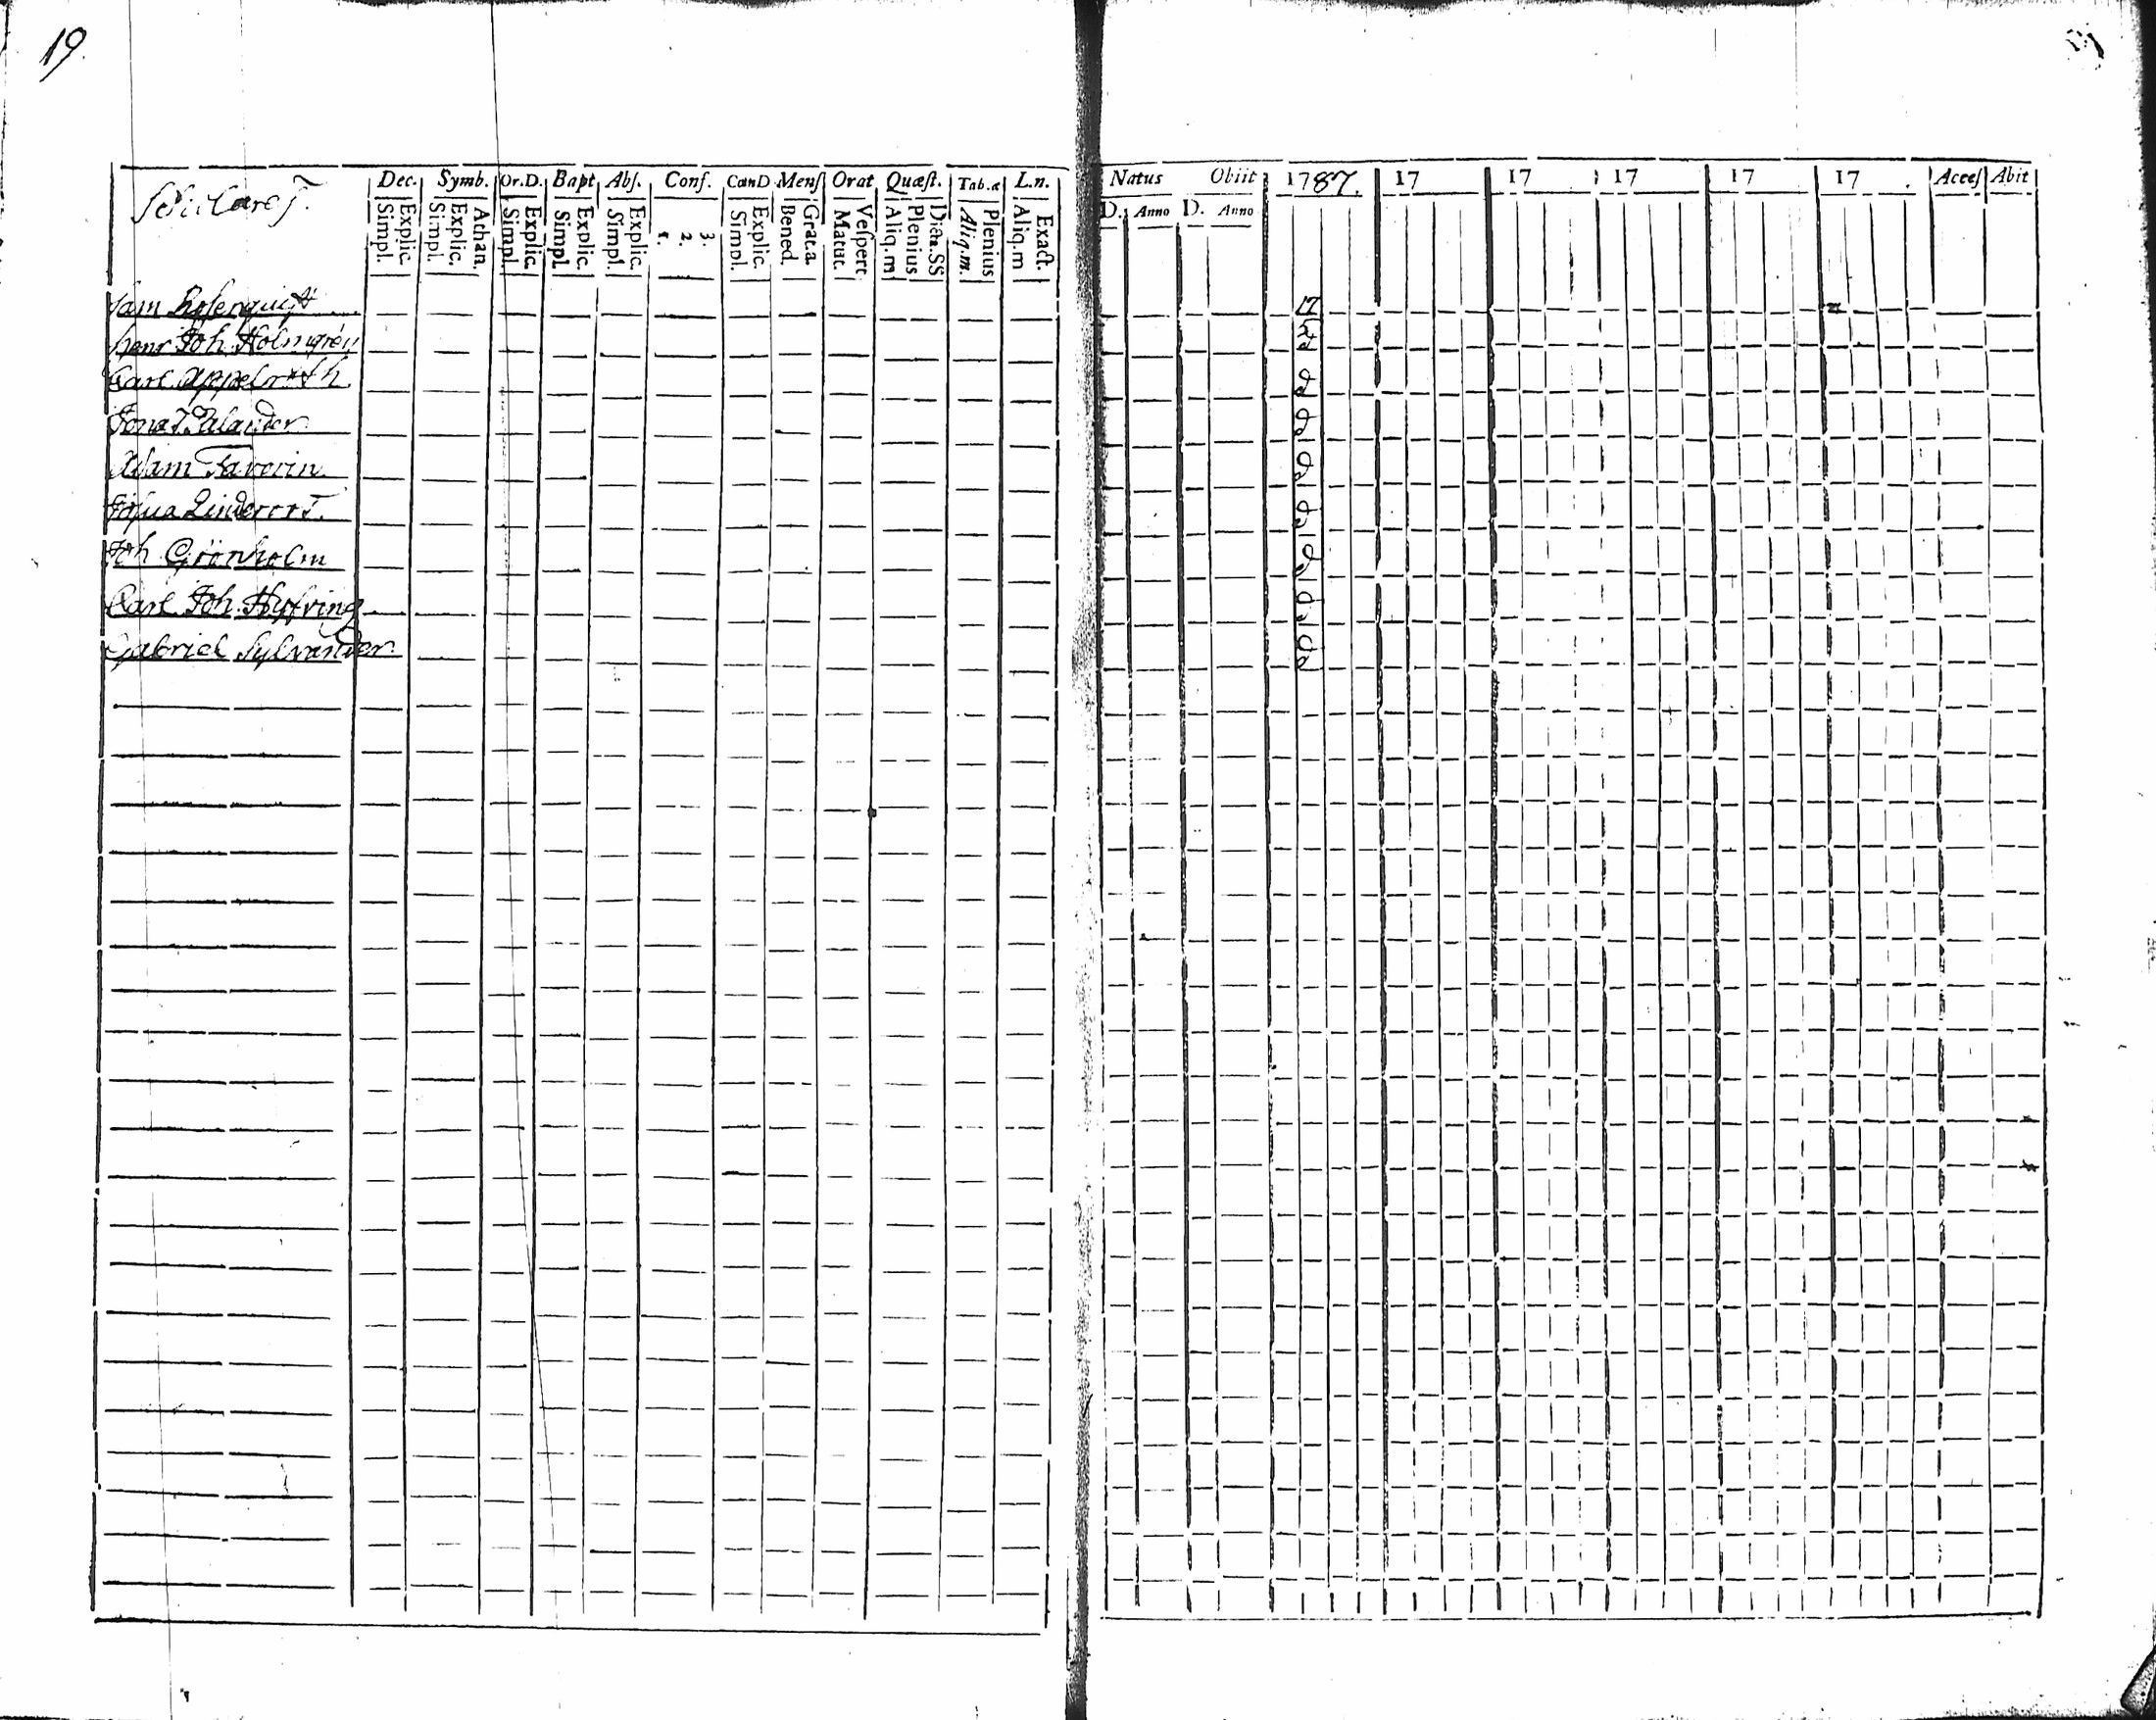 19.
Scholares.
Dec. Symb. Or.D. Bapt Abſ. Conf. CœnD Menſ Orat Quæſt. Tab.æ L.n.
Simpl. Explic. Simpl. Explic. Athan. Simpl. Explic. Simpl. Explic. Simpl. Explic. 1. 2. 3. Simpl. Explic. Bened. Grat.a. Matut. Veſpert Aliq.m Plenius Dicta.SS Aliq.m. Plenius Aliq.m Exact.
Natus Obiit 1787. 17 17 17 17 17 Acceſ Abit
D. Anno D. Anno
Sam Rosenquist
Henr Joh Holmgrén
Carl Appelroth
Jonas Palander
Adam Taverin
Josua Linderoos.
Joh Grönholm
Carl Joh. Hyfving
Gabriel Sylvander